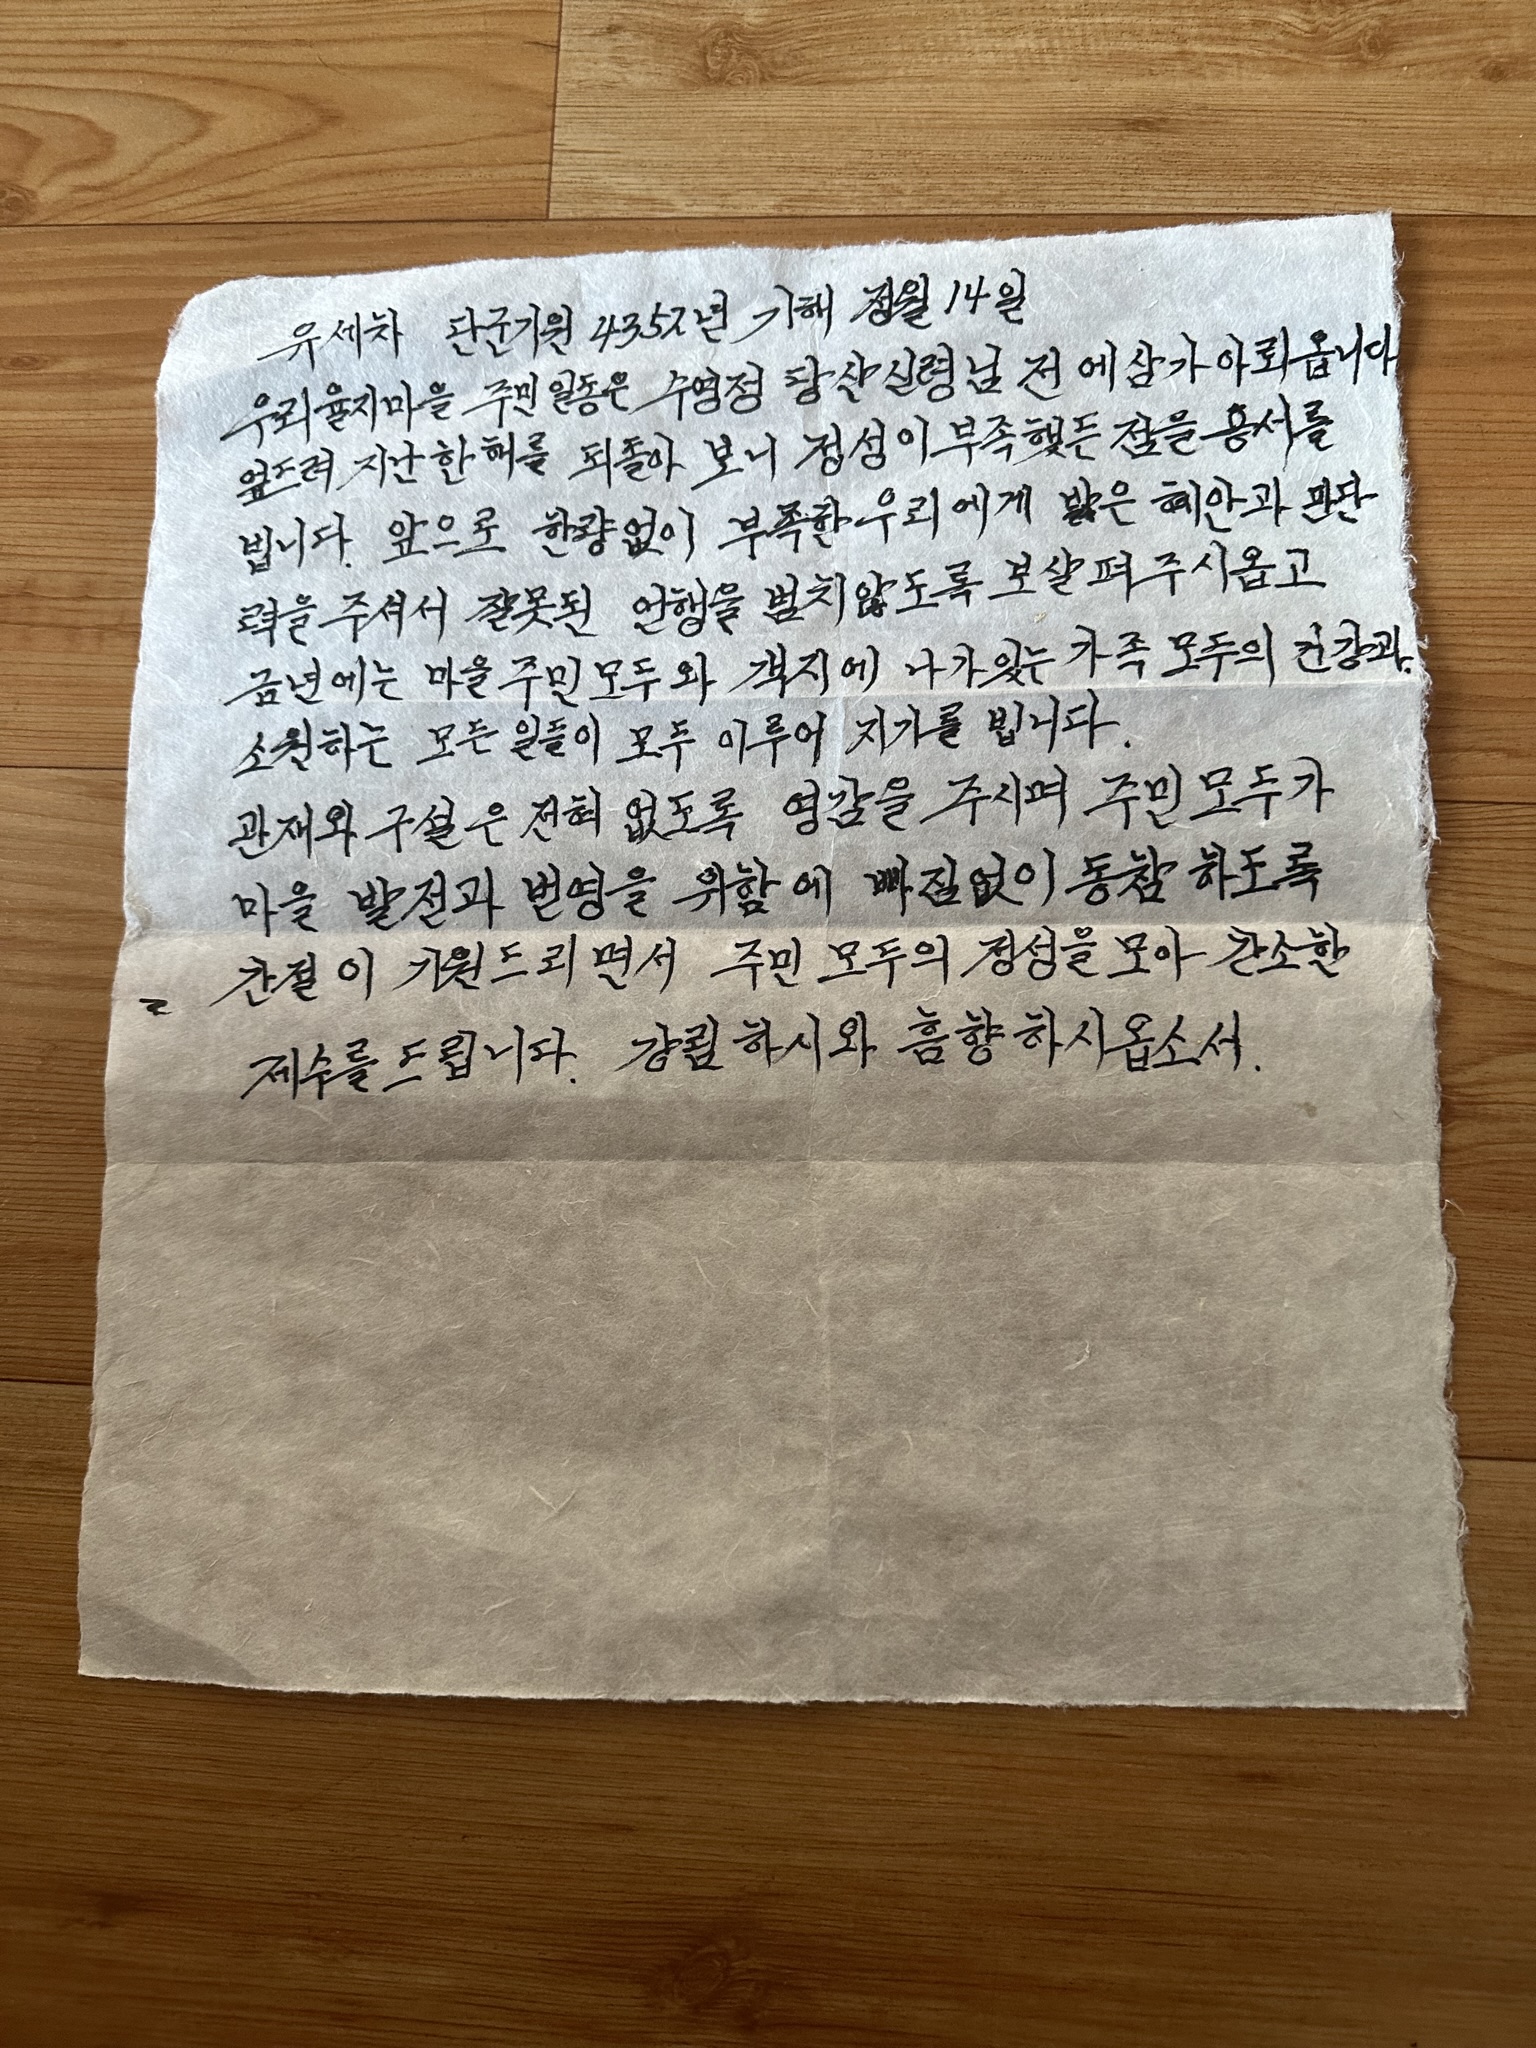 유세차 단군기원 4352년 기해 정월 14일
우리율지마을 주민일동은 수영정 당산신령님 전에삼가아뢰옵니다
엎드려 지난한해를 되돌아 보니 정성이부족했든 점을 용서를
빕니다. 앞으로 한량없이 부족한우리에게 밝은 혜안과 판단
력을 주셔서 잘못된 언행을 범치않도록 보살펴주시옵고
금년에는 마을주민모두와 객지에 나가있는 가족 모두의 건강과.
소원하는 모든 일들이 모두 이루어 지기를 빕니다.
관재와 구설은 전혀 없도록 영감을 주시며 주민모두가
마을 발전과 번영을 위함에 빠짐없이 동참하도록
간절이 기원드리면서 주민 모두의 정성을모아 간소한
제수를드립니다. 강림하시와 흠향하시옵소서.